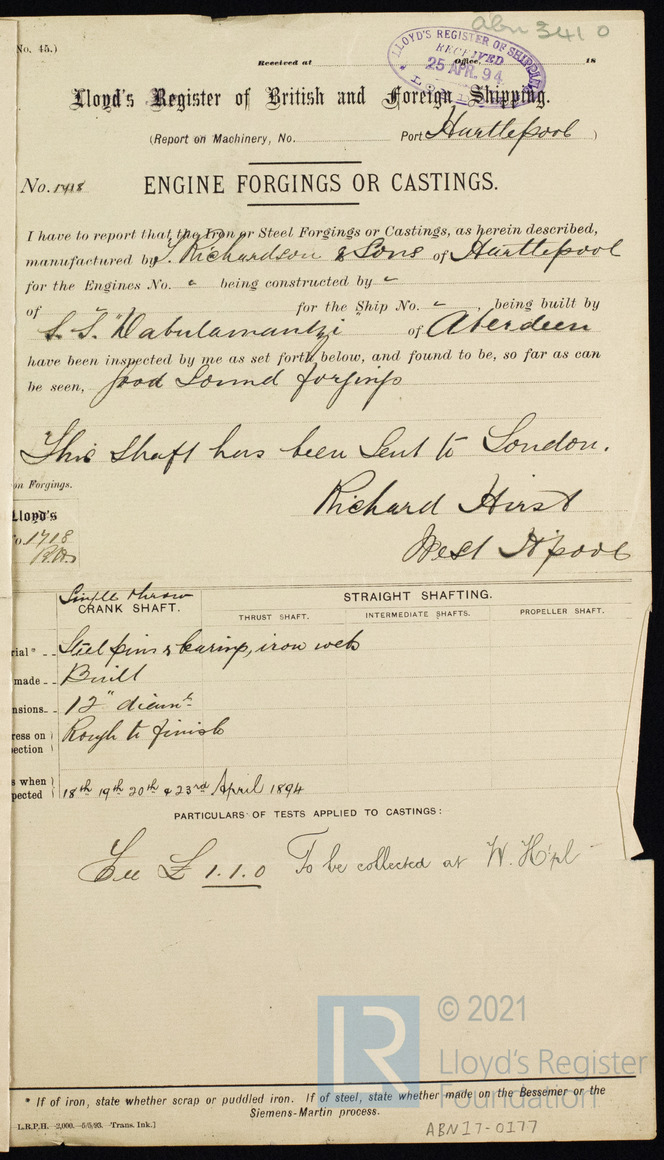 abn 341 0
No. 45.)
Received at Office, 18
LLOYD'S REGISTER OF SHIPPING
RECEIVED
25 APR. 94
Lloyd's Register of British and Foreign Shipping.
(Report on Machinery, No. Port Hartlepool )
No. 1718 ENGINE FORGINGS OR CASTINGS.
I have to report that the Iron or Steel Forgings or Castings, as herein described,
manufactured by T. Richardson & Sons of Hartlepool
for the Engines No. " being constructed by "
of " for the Ship No. " , being built by
S. S. "Dabulamanzi" of Aberdeen
have been inspected by me as set forth below, and found to be, so far as can
be seen, good sound forgings
This shaft has been sent to London.
on Forgings.
Richard Hirst
Lloyd's
No 1718
West H'pool
Single throw
CRANK SHAFT. STRAIGHT SHAFTING.
THRUST SHAFT. INTERMEDIATE SHAFTS. PROPELLER SHAFT.
rial * Steel pins & bearing, iron web
made Built
nsions 12" diamtr
ress on Rough to finish
ection
s when
pected 18th 19th 20th & 23rd April 1894
PARTICULARS OF TESTS APPLIED TO CASTINGS:
Fee £ 1.1.0 To be collected at W. H'pl
© 2021
LR
Lloyd's Register
Foundation
* If of iron, state whether scrap or puddled iron. If of steel, state whether made on the Bessemer or the
Siemens-Martin process.
L.R.P.H. 2,000. -5/5/93. -Trans. Ink.]
ABN17-0177